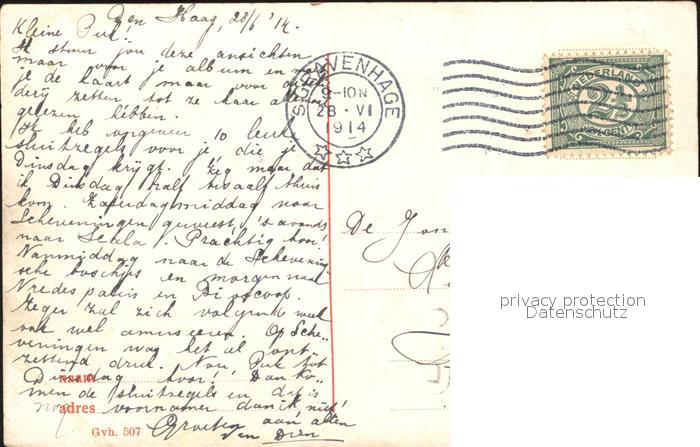 Den Haag, 28/6 '14.
Kleine Puk!
Ik stuur jou deze ansichten
maar voor je album en
je de kaart maar voor
derij zetten tot ze haar
gelezen hebben.
Ik heb ongeveer 10 leuke
sluitzegels voor je die je
Dinsdag krijgt. Zeg maar dat
ik Dinsdag half thuis
kom. Zaterdagmiddag naar
Scheveningen geweest, 's avonds
naar Scala. Prachtig hoor!
Nanmiddag naar de Schevening-
sche boschjes en morgen naar
Vredespaleis en Bioscoop.
Zeger zal zich volgende week
ook wel amuseeren. Op Sche-
veningen was het al ont-
zettend druk. Nou, Puk tot
Dinsdag hoor! Dan ko-
men de sluitzegels en dat is
nog voornamer dan ik, niet!
Groeten aan allen
van Dien
naam
adres
Gvh. 507
'S GRAVENHAGE
9-10 N
28 · VI
1914
NEDERLAND
2½
CENT
De
privacy protection
Datenschutz